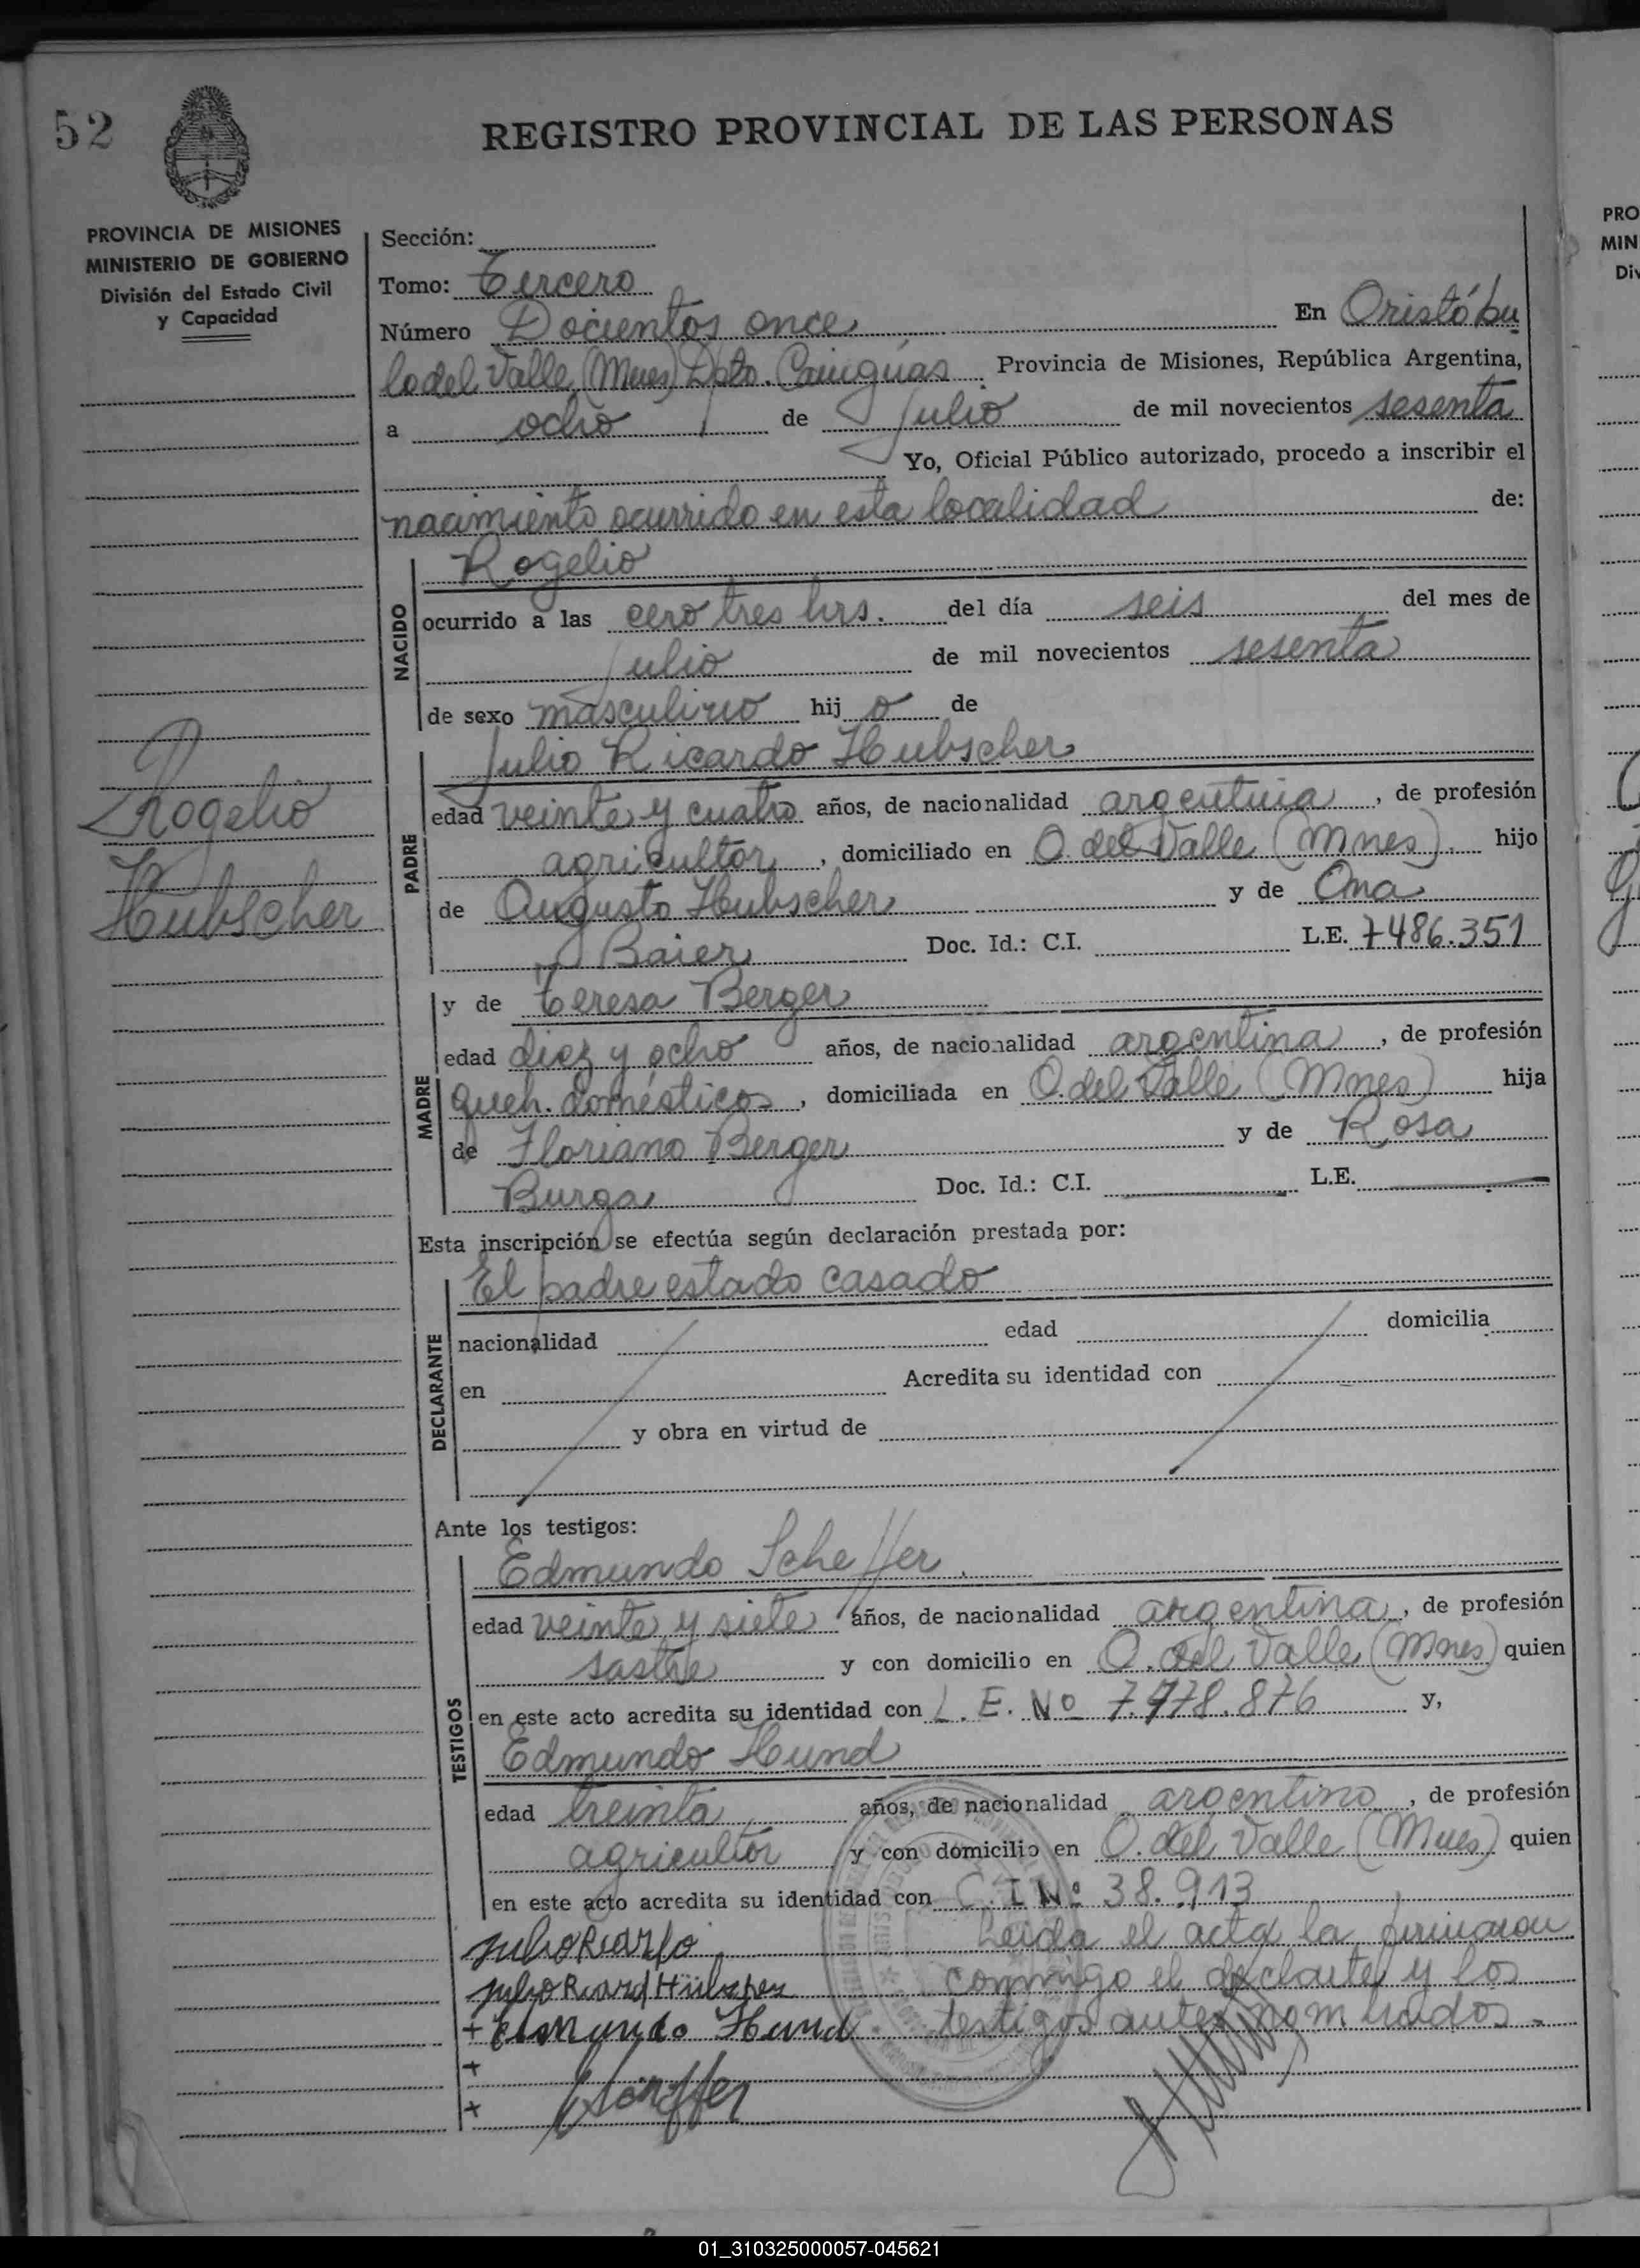 52
REGISTRO PROVINCIAL DE LAS PERSONAS
PROVINCIA DE MISIONES
MINISTERIO DE GOBIERNO
División del Estado Civil
y Capacidad
Sección:
Tomo: Tercero
Número Docientos once En Oristóbu
lo del Valle (Mnes) Dpto. Cainguas Provincia de Misiones, República Argentina,
a ocho de Julio de mil novecientos sesenta
Yo, Oficial Público autorizado, procedo a inscribir el
nacimiento ocurrido en esta localidad de:
NACIDO
Rogelio
ocurrido a las cero tres hrs. del día seis del mes de
Julio de mil novecientos sesenta
de sexo masculino hij o de
Rogelio
Hubscher
PADRE
Julio Ricardo Hubscher
edad veinte y cuatro años, de nacionalidad argentina, de profesión
agricultor, domiciliado en O. del Valle (Mnes). hijo
de Augusto Hubscher y de Ona
Baier Doc. Id.: C.I. L.E. 7486.351
MADRE
y de Teresa Berger
edad diez y ocho años, de nacionalidad argentina, de profesión
queh. domésticos, domiciliada en O. del Valle (Mnes) hija
de Floriano Berger y de Rosa
Burga Doc. Id.: C.I. L.E.
Esta inscripción se efectúa según declaración prestada por:
DECLARANTE
El padre estado casado
nacionalidad edad domicilia
en Acredita su identidad con
y obra en virtud de
Ante los testigos:
TESTIGOS
Edmundo Scheffer
edad veinte y siete años, de nacionalidad argentina, de profesión
sastre y con domicilio en O. del Valle (Mnes) quien
en este acto acredita su identidad con L.E. Nº 7.478.876 y,
Edmundo Hund
edad treinta años, de nacionalidad argentino, de profesión
agricultor y con domicilio en O. del Valle (Mnes) quien
en este acto acredita su identidad con C.I Nº 38.913
Leida el acta la firmaron
conmigo el declarte y los
+ Edmundo Hund testigos antes nombrados.
+
+
PRO
MIN
Div
01_310325000057-045621